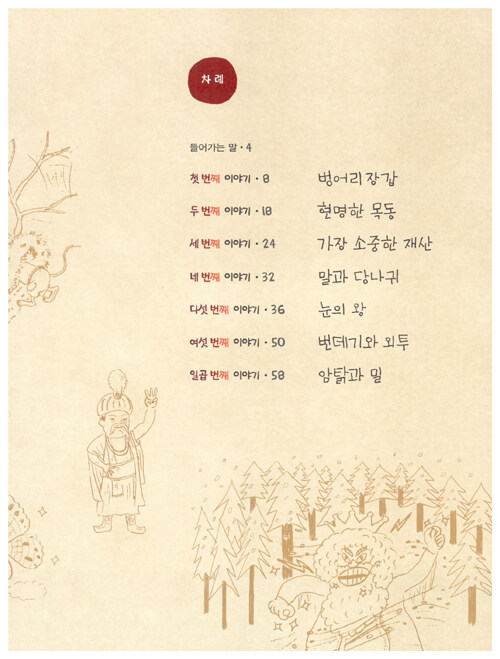 차례
들어가는 말 • 4
첫 번째 이야기 • 8 벙어리장갑
두 번째 이야기 • 18 현명한 목동
세 번째 이야기 • 24 가장 소중한 재산
네 번째 이야기 • 32 말과 당나귀
다섯 번째 이야기 • 36 눈의 왕
여섯 번째 이야기 • 50 번데기와 외투
일곱 번째 이야기 • 58 암탉과 밀